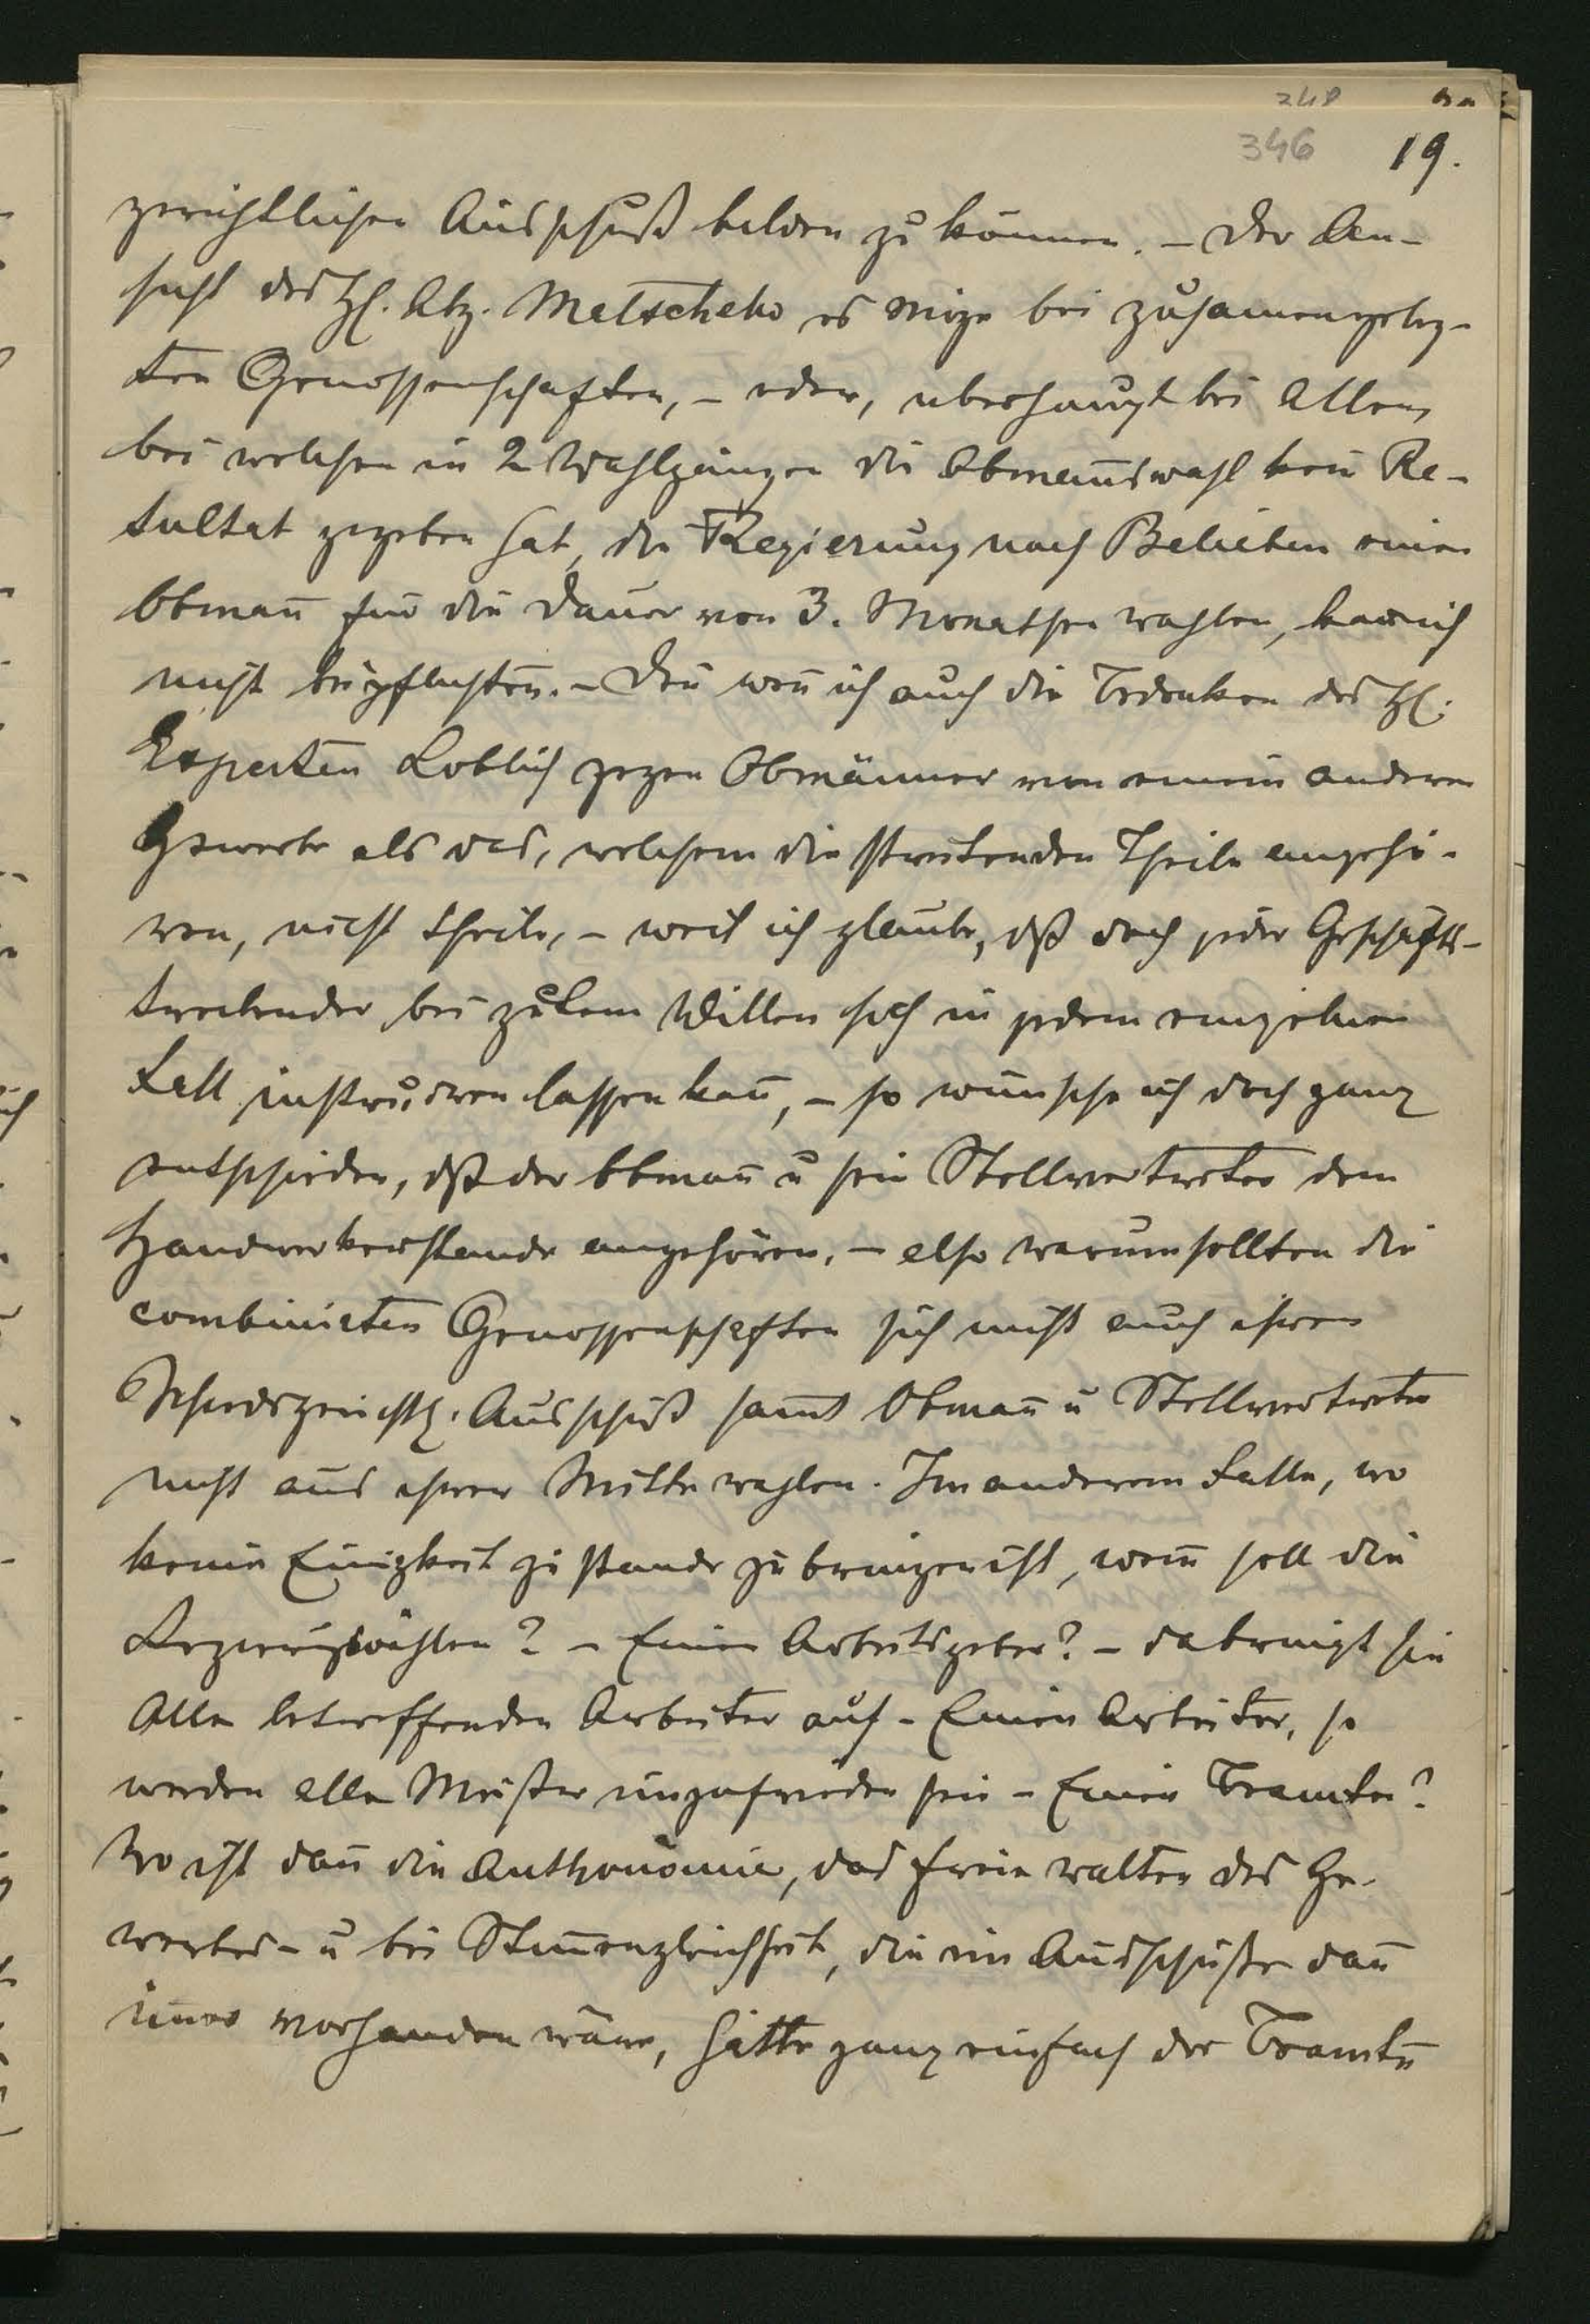 248
346 19.
gerichtlichen Ausschuß bilden zu können. – Der An-
sicht des H. Abg. Matscheko es möge bei zusam̅engeleg-
ten Genossenschaften, – oder, überhaupt bei Allen,
bei welchen in 2 Wahlgängen die Obman̅swahl kein Re-
sultat gegeben hat, die Regierung nach Belieben einen
Obman̅ für die Dauer von 3. Monathen wählen, kan̅ ich
nicht beipflichten. – Den̅ wen̅ ich auch die Bedenken des H.
Experten Loblich gegen Obmänner von einem anderen
Gewerbe als das, welchem die streitenden Theile angehö-
ren, nicht theile, – weil ich glaube, dß doch jeder Geschäfts-
treibender bei gutem Willen sich in jedem einzelnen
Fall instruiren lassen kan̅, – so wünsche ich doch ganz
entschieden, dß der Obman̅ u sein Stellvertreter dem
Handwerkerstande angehören, – also warum sollten die
combinirten Genossenschaften sich nicht auch ihren
Schiedsgerichtl. Ausschuß sam̅t Obman̅ u Stellvertreter
nicht aus ihrer Mitte wählen. Im anderem Falle, wo
keine Einigkeit zu stande zu bringen ist, wem̅ soll die
Regierung wählen? – Einen Arbeitsgeber? – da bringt sie
Alle betreffenden Arbeiter auf – Einen Arbeiter, so
werden alle Meister unzufrieden sein – Einen Beamten?
Wo ist dan̅ die Authonomie, das freie walten des Ge-
werbes – u bei Stim̅engleichheit, die im Ausschuße dan̅
im̅er vorhanden wäre, hätte ganz einfach der Beamte